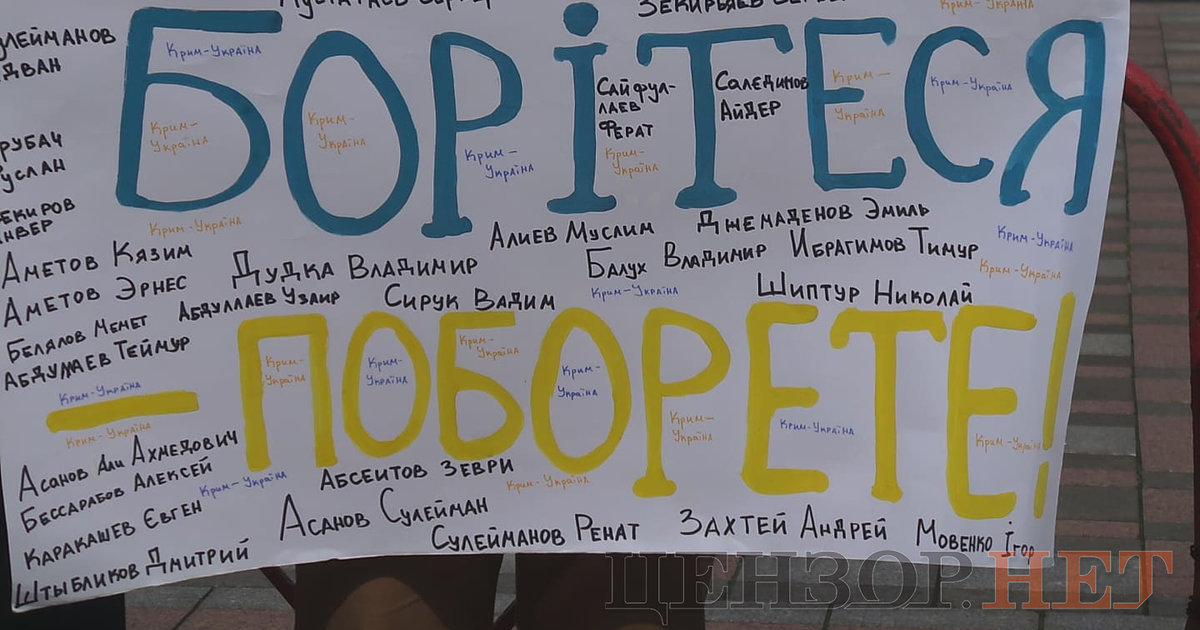 БОРІТЕСЯ
Крим-Україна
Крим-Україна
Крим-Україна
Крим-Україна
Крим-Україна
Крим-Україна
Крим-Україна
Крим-Україна
Сайфуллаев Ферат
Саледінов Айдер
Крим-Україна
Аметов Кязим
Аметов Эрнес
Белялов Мемет
Дудка Владимир
Абдуллаев Узаир
Сирук Вадим
Алиев Муслим
Джемаденов Эмиль
Балух Владимир
Ибрагимов Тимур
Шиптур Николай
Крим-Україна
Крим-Україна
Крим-Україна
– ПОБОРЕТЕ!
Крим-Україна
Крим-Україна
Крим-Україна
Крим-Україна
Крим-Україна
Крим-Україна
Крим-Україна
Крим-Україна
Крим-Україна
Асанов Али Ахмедович
Бессарабов Алексей
Крим-Україна
Абсеитов Зеври
Крим-Україна
Каракашев Євген
Асанов Сулейман
Штыбликов Дмитрий
Сулейманов Ренат
Захтей Андрей
Мовенко Ігор
ЦЕНЗОР.НЕТ